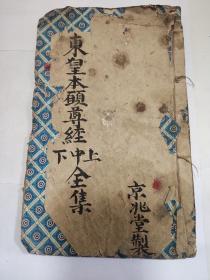 東皇本願尊経上中下全集
京兆堂製